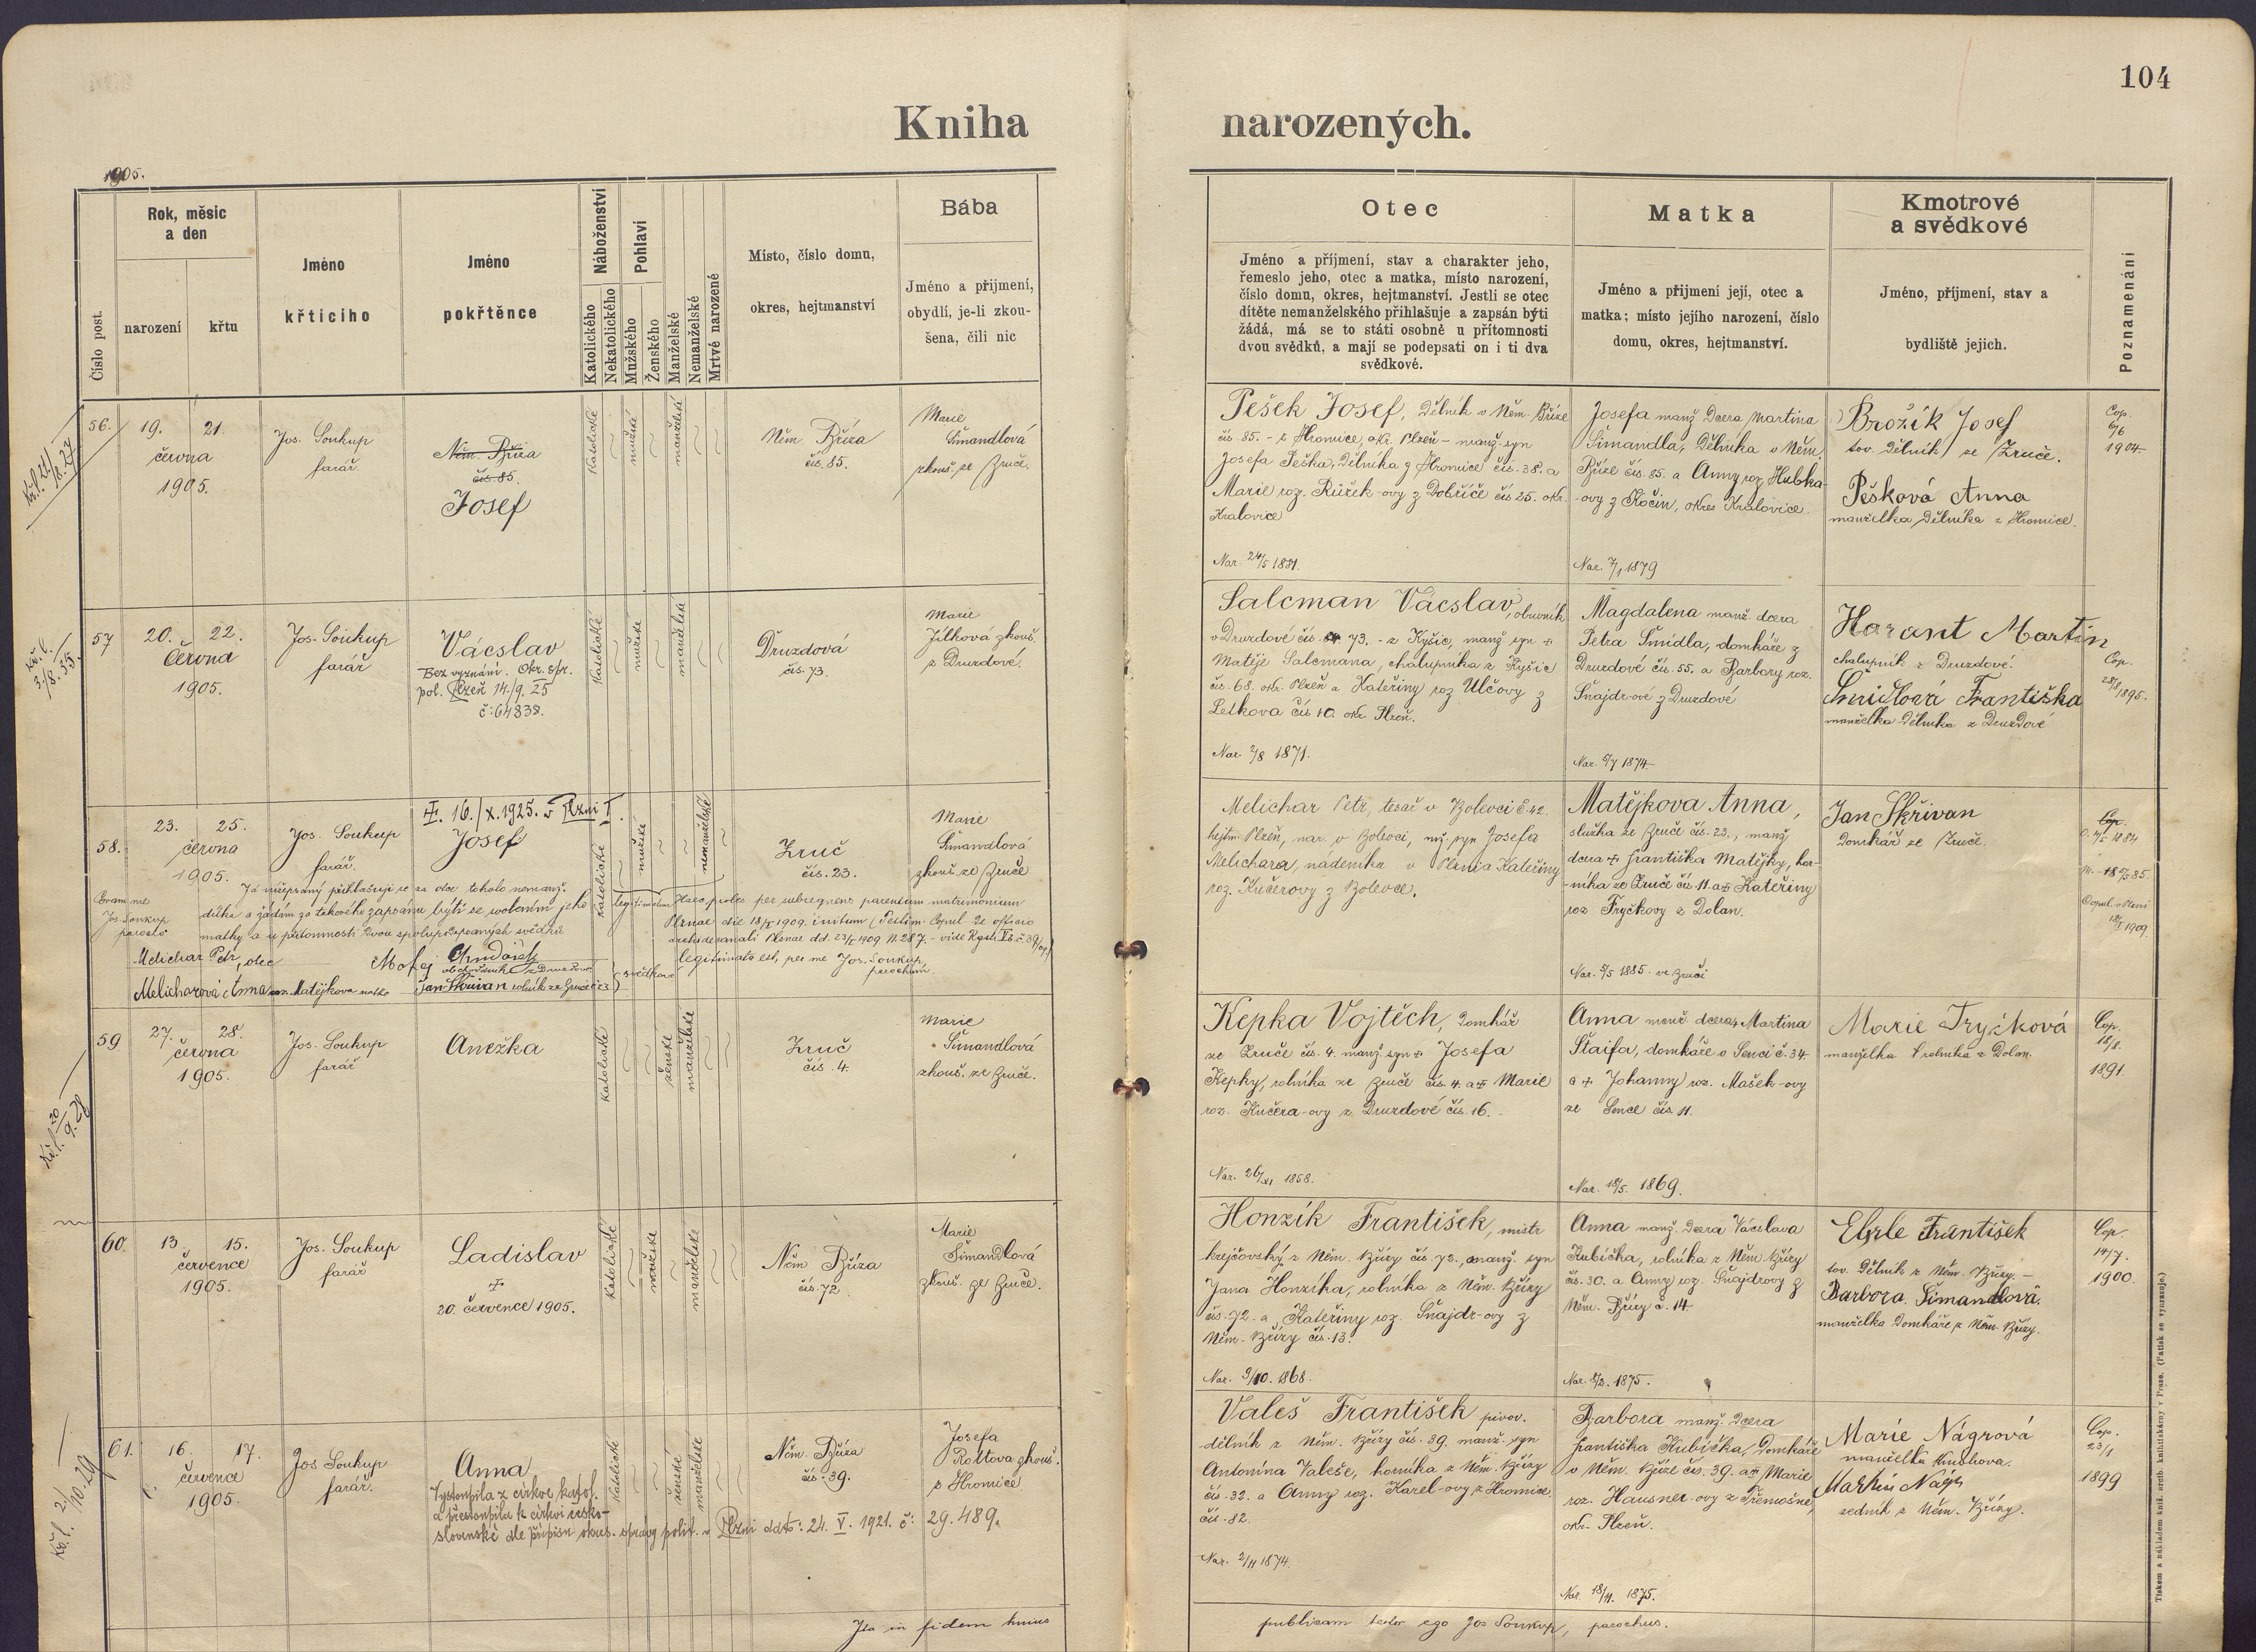 104
Kniha narozených.
1905.
Číslo post.
Rok, měsíc
a den
narození
křtu
Jméno
křtícího
Jméno
pokřtěnce
Náboženství
Katolického
Nekatolického
Pohlaví
Mužského
Ženského
Manželské
Nemanželské
Mrtvé narozené
Místo, číslo domu,
okres, hejtmanství
Bába
Jméno a přijmení,
obydlí, je-li zkou-
šena, čili nic
Otec
Jméno a příjmení, stav a charakter jeho,
řemeslo jeho, otec a matka, místo narození,
číslo domu, okres, hejtmanství. Jestli se otec
dítěte nemanželského přihlašuje a zapsán býti
žádá, má se to státi osobně u přítomnosti
dvou svědků, a mají se podepsati on i ti dva
svědkové.
Matka
Jméno a přijmení její, otec a
matka; místo jejího narození, číslo
domu, okres, hejtmanství.
Kmotrové
a svědkové
Jméno, příjmení, stav a
bydliště jejich.
Poznamenání
56.
19. 21.
června
1905.
Jos. Soukup
farář.
Něm. Bříza
čís. 85.
Josef
katolické
mužské
manželské
Něm. Bříza
čís. 85.
Marie
Šimandlová
zkouš. ze Zruče.
Pešek Josef, dělník v Něm. Bříze
čís. 85. - z Hromice, okr. Plzeň - manž. syn
Josefa Peška, dělníka z Hromice čís. 38. a
Marie roz. Růžek-ovy z Dobříče čís 25. okr.
Kralovice
Nar. 24/5 1881.
Josefa manž. dcera Martina
Šimandla, dělníka v Něm.
Bříze čís. 85. a Anny roz. Hubka-
-ovy z Kočin, okres Kralovice.
Nar. 7/1 1879
Brožík Josef
tov. dělník ze Zruče.
Pešková Anna
manželka dělníka z Hromice.
Cop.
6/6
1904
57
20. 22.
června
1905.
Jos. Soukup
farář
Václav
Bez vyznání. Okr. spr.
pol. Plzeň 14./9. 25
č: 64838.
katolické
mužské
manželské
Druzdová
čís. 73.
Marie
Jílková zkouš
z Druzdové.
Salcman Vácslav, obuvník
v Druzdové čís 73. - z Kyšic, manž syn +
Matěje Salcmana, chalupníka z Kyšic
čís. 68. okr. Plzeň a Kateřiny roz Ulčovy z
Letkova čís 10. okr Plzeň.
Nar. 2/8 1871.
Magdalena manž. dcera
Petra Šmídla, domkáře z
Druzdové čís. 55. a Barbory roz.
Šnajdrové z Druzdové
Nar. 5/7 1874
Harant Martin
chalupník z Druzdové.
Šmidlová Františka
manželka dělníka z Druzdové
Cop.
28/8 1895.
58.
23. 25.
června
1905.
Jos. Soukup
farář.
+. 16./X. 1925. v Plzni I.
Josef
katolické
mužské
nemanželské
Zruč
čís. 23.
Marie
Šimandlová
zkouš. ze Zruče
Coram me
Jos. Soukup
parocho
Já nížepsaný přihlašuji se za otce tohoto nemanž.
dítka a žádám za takového zapsánu býti se svolením jeho
matky a u přítomnosti dvou spolupodepsaných svědků
Melichar Petr, otec
Melicharová Anna roz. Matějkova matka
Jan Skřivan rolník ze Zruče č 23
svědkové
legitimatum
Haec proles per subsequens parentum matrimonium
Plznae die 18/5 1909. initum (Testim. Copul. de officio
archidecanali Plznae dd. 23/5 1909 N. 287. - vide Regstr. č. 39/09)
legitimata est, per me Jos. Soukup,
parochum.
Melichar Petr, tesař v Bolevci č. 42.
hejtm. Plzeň, nar. v Bolevci, mž. syn Josefa
Melichara, nádeníka v Plzni a Kateřiny
roz. Kučerovy z Bolevce.
Matějkova Anna,
služka ze Zruče čís. 23., manž
dcera + Františka Matějky, hor-
-níka ze Zruče čís 11. a + Kateřiny
roz Tryčkovy z Dolan.
Nar. 5/5 1885. ve Zruči
Jan Skřivan
domkář ze Zruče.
Copul. v Plzni
18/5 1909.
59
27. 28.
června
1905.
Jos. Soukup
farář
Anežka
katolické
ženské
manželské
Zruč
čís. 4.
Marie
Šimandlová
zkouš. ze Zruče.
Kepka Vojtěch, domkář
ze Zruče čís. 4. manž. syn + Josefa
Kepky, rolníka ze Zruče čís. 4. a + Marie
roz. Kučera-ovy z Druzdové čís. 16.
Nar. 26/XI 1858.
Anna manž. dcera + Martina
Štaifa, domkáře v Senci č. 34
a + Johanny roz. Mašek-ovy
ze Sence čís. 11.
Nar. 18/5. 1869.
Marie Tryčková
manželka rolníka z Dolan.
Cop.
18/8.
1891.
60.
13. 15.
července
1905.
Jos. Soukup
farář
Ladislav
+
20. července 1905.
katolické
mužské
manželské
Něm Bříza
čís. 72.
Marie
Šimandlová
zkouš. ze Zruče.
Honzík František, mistr
krejčovský z Něm. Břízy čís. 72., manž. syn
Jana Honzíka, rolníka z Něm. Břízy
čís. 72. a Kateřiny roz. Šnajdr-ovy z
Něm. Břízy čís. 13.
Nar. 3/10. 1868.
Anna manž. dcera Vácslava
Kubíčka, rolníka z Něm Břízy
čís. 30. a Anny roz. Šnajdrovy z
Něm. Břízy č. 14.
Nar. 8/2. 1875.
Eberle František
tov. dělník z Něm. Břízy. -
Barbora Šimandlová.
manželka domkáře z Něm. Břízy.
Cop.
14/7.
1900.
61.
16. 17.
července
1905.
Jos Soukup
farář.
Anna
Vystoupila z církve katol.
a přestoupila k církvi česko-
slovenské dle přípisu okres. správy polit. v Plzni ddto: 24. V. 1921. č: 29.489.
katolické
ženské
manželské
Něm. Bříza
čís. 39.
Josefa
Rottova zkouš.
z Hromice.
Valeš František pivov.
dělník z Něm. Břízy čís. 39. manž. syn
Antonína Valeše, horníka z Něm. Břízy
čís. 32. a Anny roz. Karel-ovy z Hromice
čís. 82.
Nar. 2/11 1874.
Barbora manž. dcera
Františka Kubíčka, domkáře
v Něm. Bříze čís. 39. a + Marie
roz. Hausner-ovy z Třemošné,
okr. Plzeň.
Nar. 18/11. 1875.
Marie Nágrová
manželka
Martin Nágr
zedník z Něm. Břízy.
Cop.
23/1
1899
Ita in fidem huius publicam testor ego Jos Soukup, parochus.